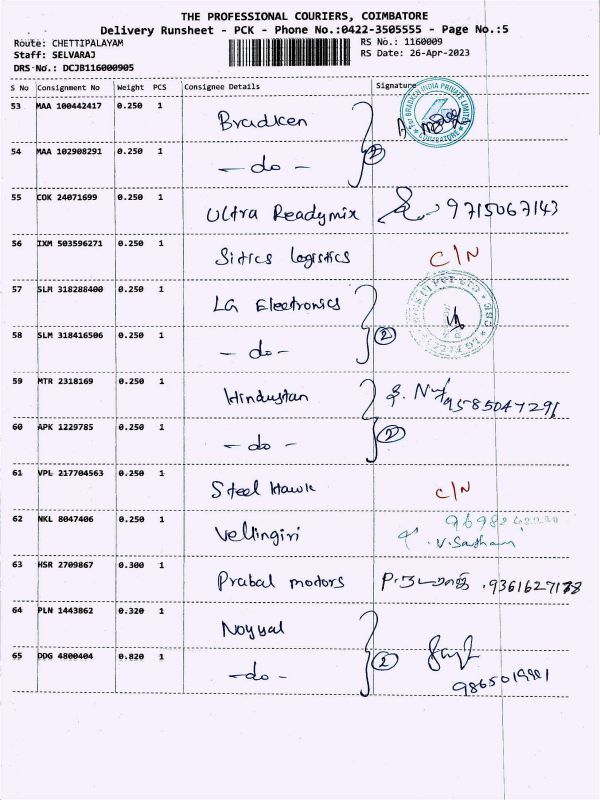 THE PROFESSIONAL COURIERS, COIMBATORE
Delivery Runsheet - PCK - Phone No.:0422-3505555 - Page No.:5
Route: CHETTIPALAYAM RS No.: 1160009
Staff: SELVARAJ RS Date: 26-Apr-2023
DRS-No.: DCJB116000905
S No Consignment No Weight PCS Consignee Details Signature
53 MAA 100442417 0.250 1 Bradken
For BRADKEN INDIA PRIVATE LIMITED COIMBATORE
54 MAA 102908291 0.250 1 - do - 2
55 COK 24071699 0.250 1 Ultra Readymix 9715067143
56 IXM 503596271 0.250 1 Sitics logistics C/N
57 SLM 318288400 0.250 1 LG Electronics
58 SLM 318416506 0.250 1 - do - 2
59 MTR 2318169 0.250 1 Hindustan 9585047296
60 APK 1229785 0.250 1 - do - 2
61 VPL 217704563 0.250 1 Steel Hawk C/N
62 NKL 8047406 0.250 1 Vellingiri
63 HSR 2709867 0.300 1 Prabal motors
64 PLN 1443862 0.320 1 Noyyal
65 DDG 4800404 0.820 1 - do - 2